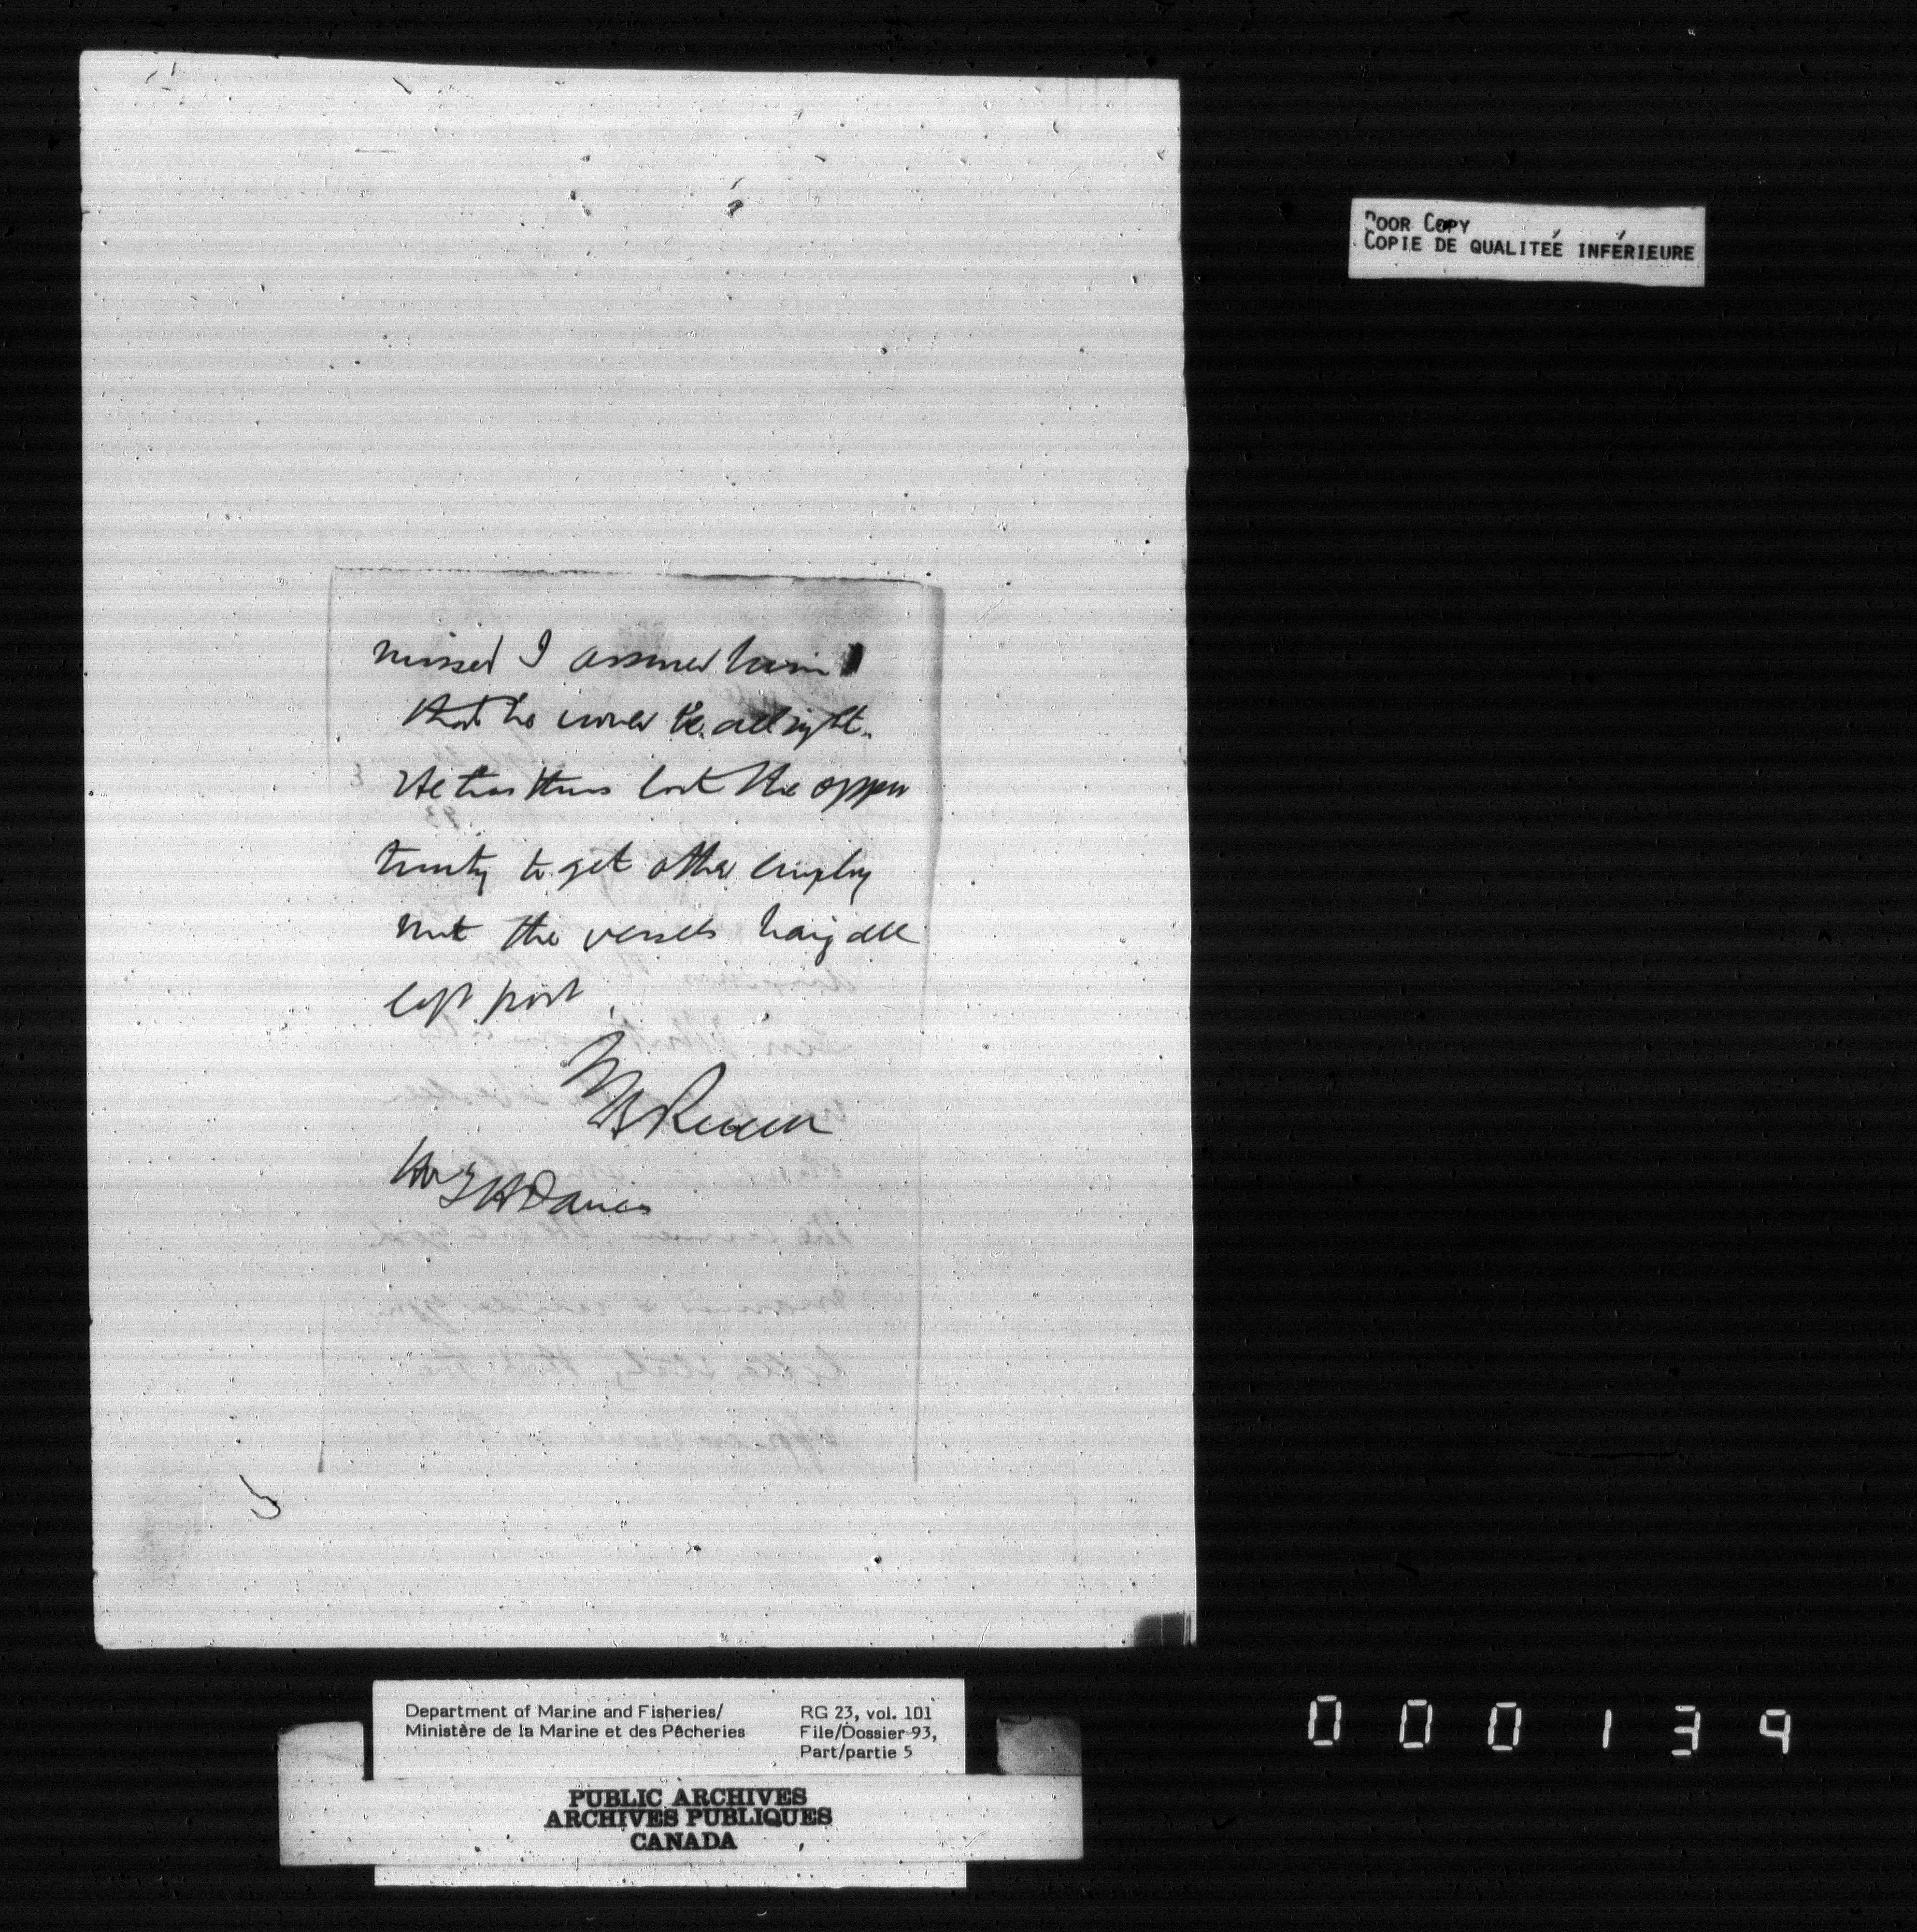 missed I assured him
that he would be all right.
He has thus lost the oppor
tunity to get other employ
ment the vessels having all
left port
Hon L H Davies
POOR COPY
COPIE DE QUALITEÉ INFÉRIEURE
Department of Marine and Fisheries/
Ministère de la Marine et des Pêcheries
RG 23, vol. 101
File/Dossier 93,
Part/partie 5
PUBLIC ARCHIVES
ARCHIVES PUBLIQUES
CANADA
000139